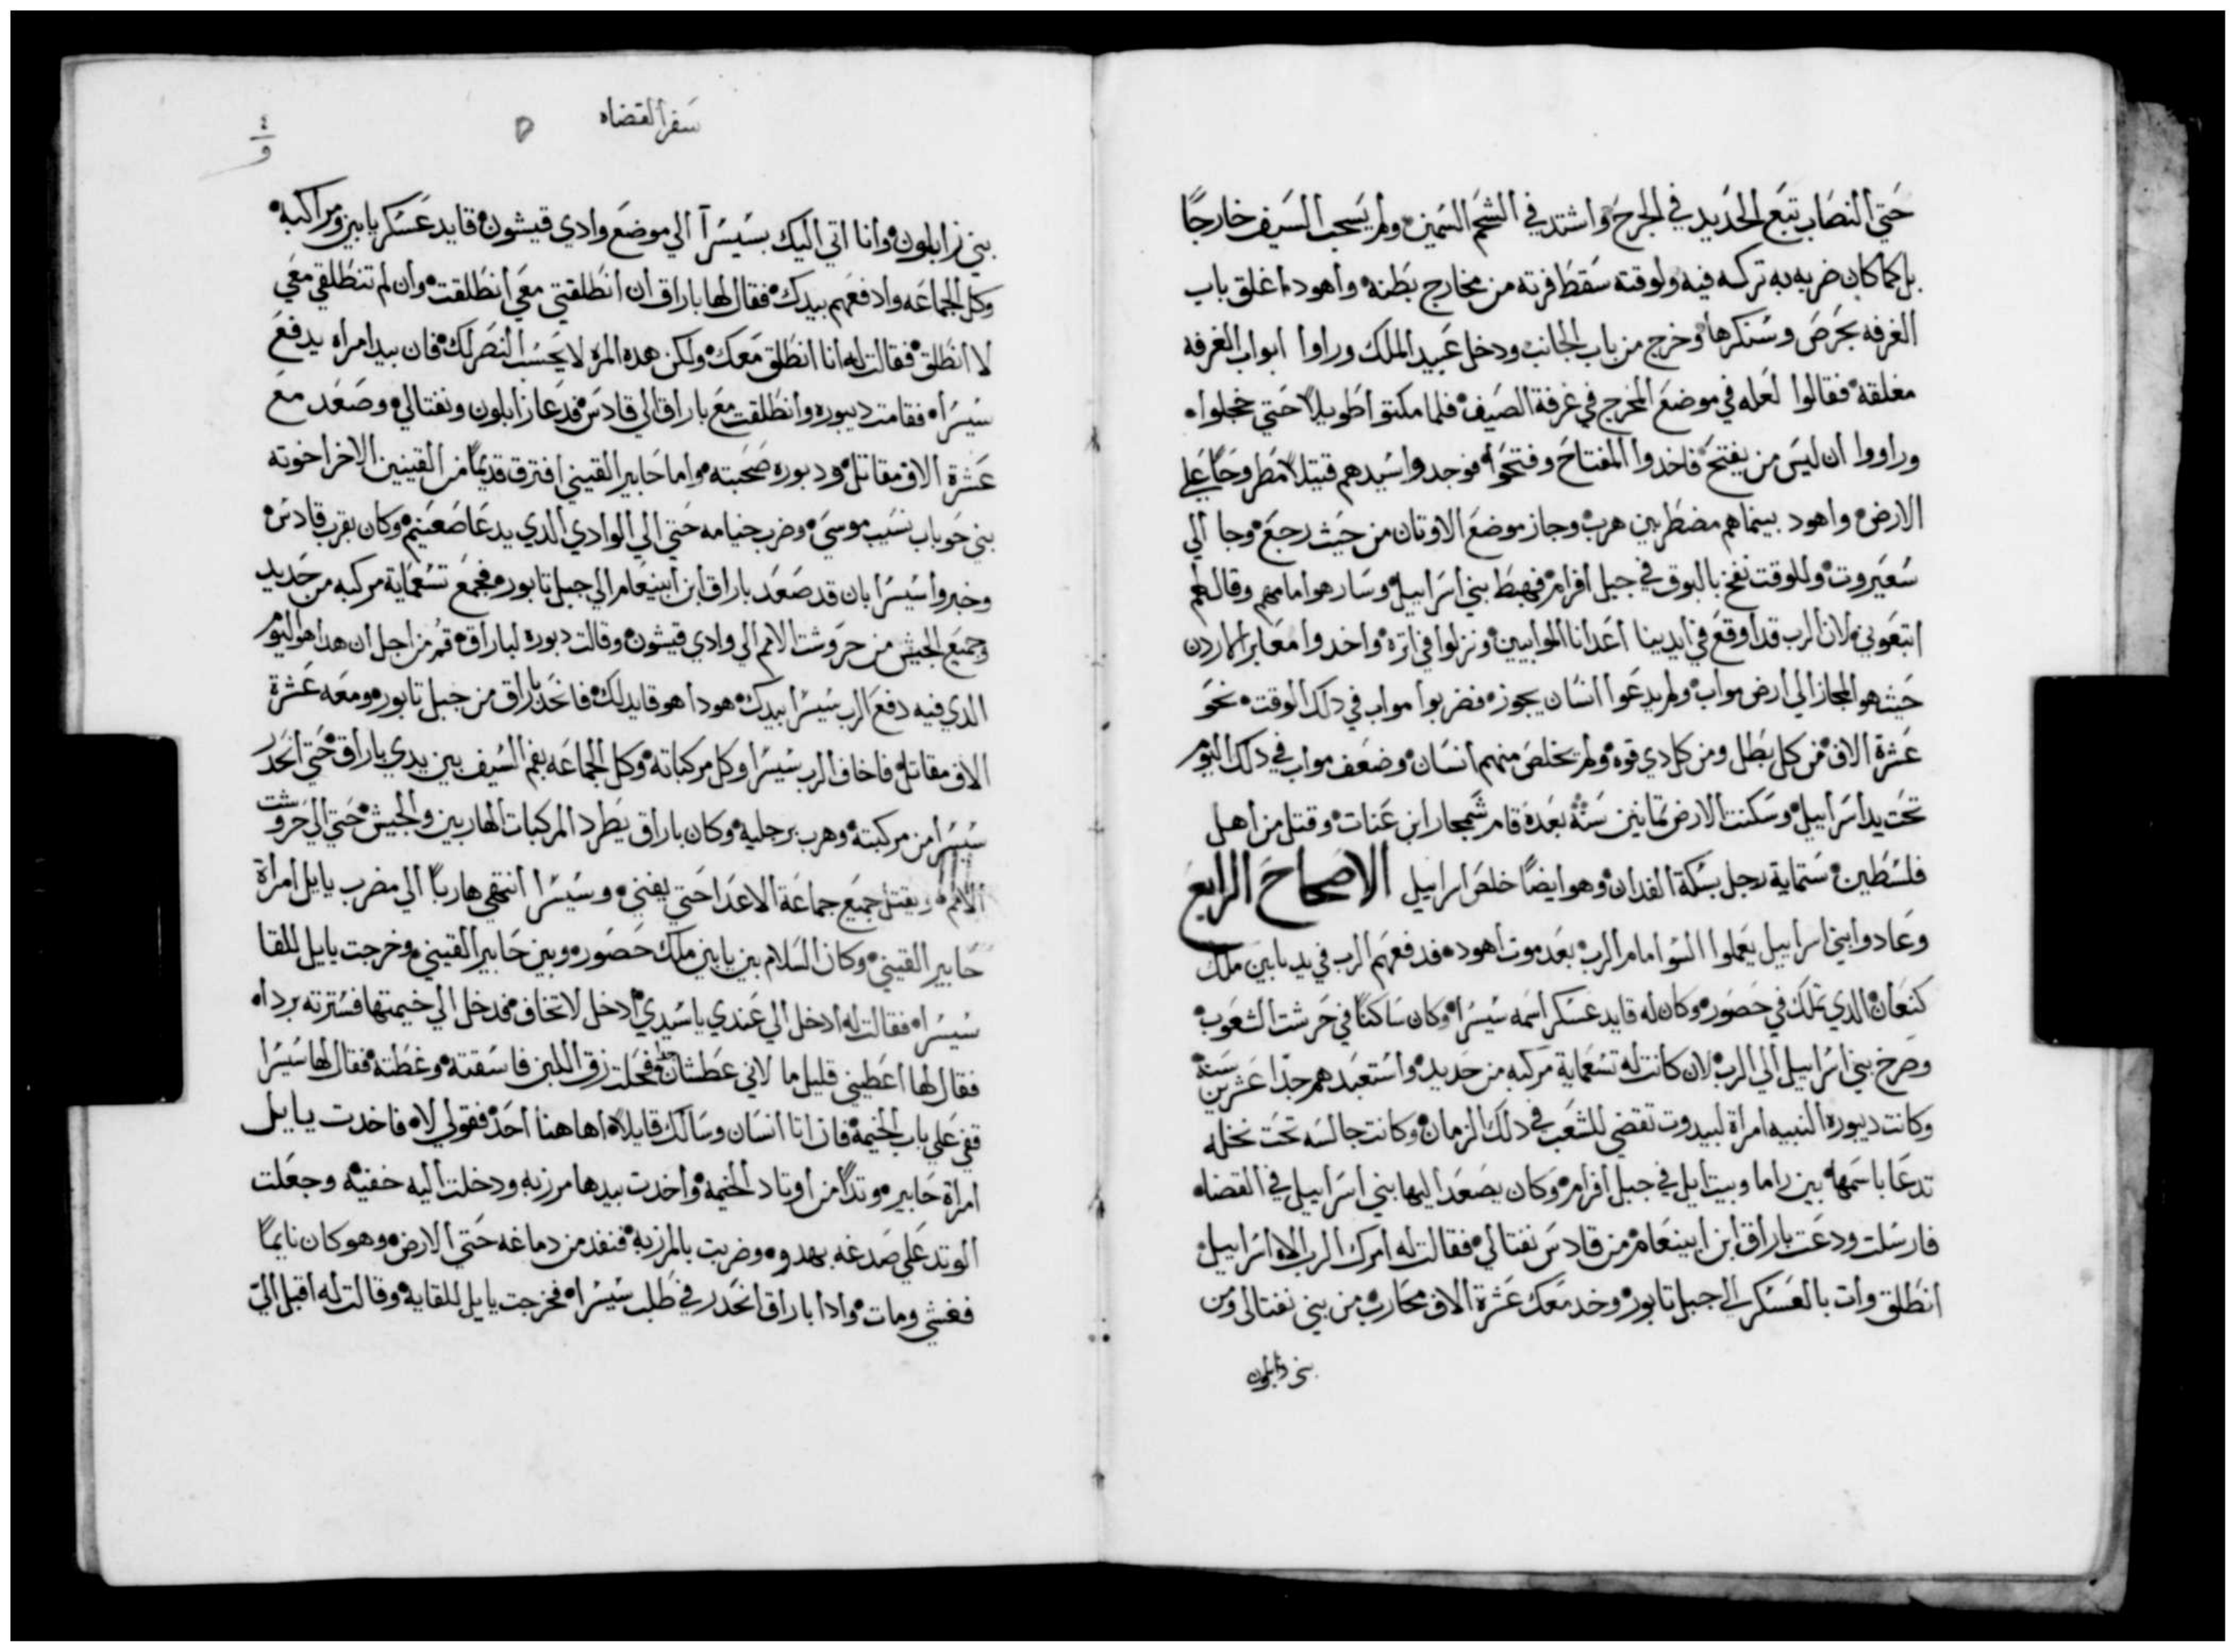 حتي النصاب تبع الحديد في الجرح واشتد في الشحم السمين ولم يسحب السيف خارجًا
بل كما كان ضربه به تركه فيه ولوقته سقط فرته من مخارج بطنه واهود اغلق باب
الغرفه بحرص وسنكرها وخرج من باب الجانب ودخل عبيد الملك وراوا ابواب الغرفه
مغلقه فقالوا لعله في موضع المخرج في غرفة الصيف فلما مكتوا طويلاً حتي خجلوا
وراووا ان ليس من يفتح فاخدوا المفتاح وفتحوا فوجدوا سيدهم قتيلاً مطروحًا علي
الارض واهود بينما هم مضطربين هرب وجاز موضع الاوتان من حيث رجع وجا الي
سعيروت وللوقت نفخ بالبوق في جبل افرام فهبط بني اسراييل وسار هو امامهم وقال لهم
اتبعوني لان الرب قد اوقع في ايدينا اعدانا الموابيين ونزلوا في اتره واخدوا معابر الاردن
حيث هو المجاز الي ارض مواب ولم يدعوا انسان يجوز فضربوا مواب في دلك الوقت نحو
عشرة الاف من كل بطل ومن كل دي قوه ولم يخلص منهم انسان وضعف مواب في دلك اليوم
تحت يد اسراييل وسكنت الارض تمانين سنة بعده قام شمجار ابن عنات وقتل من اهل
فلسطين ستماية رجل بسكة الفدان وهو ايضًا خلص اسراييل الاصحاح الرابع
وعادوا بني اسراييل يعملوا السوا امام الرب بعد موت اهود فدفعهم الرب في يد يابين ملك
كنعان الدي تملك في حصور وكان له قايد عسكر اسمه سيسرا وكان ساكنًا في حرشت الشعوب
وصرخ بني اسراييل الي الرب لان كانت له تسعماية مركبه من حديد واستعبدهم جدًا عشرين سنة
وكانت ديبوره النبيه امراة لبيدوت تقضي للشعب في دلك الزمان وكانت جالسه تحت نخله
تدعا باسمها بين راما وبيت ايل في جبل افرام وكان يصعد اليها بني اسراييل في القضاه
فارسلت ودعت باراق ابن ابينعام من قادس نفتالي فقالت له امرك الرب اله اسراييل
انطلق وات بالعسكر الي جبل تابور وخد معك عشرة الاف محارب من بني نفتالي ومن
بني زابلون
سفر القضاه
٤
و
بني زابلون وانا اتي اليك بسيسرا الي موضع وادي قيشون قايد عسكر يابين ومراكبه
وكل الجماعه وادفعهم بيدك فقال لها باراق ان انطلقتي معي انطلقت وان لم تنطلقي معي
لا انطلق فقالت له انا انطلق معك ولكن هده المره لا يحسب النصر لك فان بيد امراه يدفع
سيسرا فقامت ديبوره وانطلقت مع باراق الي قادس فدعا زابلون ونفتالي وصعد مع
عشرة الاف مقاتل ودبوره صحبته واما حابير القيني افترق قديمًا من القينيين الاخر اخوته
بني حوباب نسيب موسي وضرب خيامه حتي الي الوادي الدي يدعا صعنيم وكان بقرب قادس
وخبروا سيسرا بان قد صعد باراق ابن ابينعام الي جبل تابور فجمع تسعماية مركبه من حديد
وجميع الجيش من حروشت الامم الي وادي قيشون وقالت دبوره لباراق قم من اجل ان هدا هو اليوم
الدي فيه دفع الرب سيسرا بيدك هودا هو قايد لك فانحدر باراق من جبل تابور ومعه عشرة
الاف مقاتل فاخاف الرب سيسرا وكل مركباته وكل الجماعه بفم السيف بين يدي باراق حتي انحدر
سيسرا من مركبته وهرب برجليه وكان باراق يطرد المركبات الهاربين والجيش حتي الي حروشت
الامم ويقتل جميع جماعة الاعدا حتي يفني وسيسرا انتهي هاربًا الي مضرب يايل امراة
حابير القيني وكان السلام بين يابين ملك حصور وبين حابير القيني وخرجت يايل للقا
سيسرا فقالت له ادخل الي عندي يا سيدي ادخل لا تخاف فدخل الي خيمتها فسترته برداه
فقال لها اعطيني قليل ما لاني عطشان فحلت زق اللبن فاسقته وغطته فقال لها سيسرا
قفي علي باب الخيمة فان اتا انسان وسالك قايلاً اهاهنا احد فقولي لا فاخدت يايل
امراة حابير وتدًا من اوتاد الخيمه واخدت بيدها مرزبه ودخلت اليه خفيه وجعلت
الوتد علي صدغه بهدو وضربت بالمرزبه فنفد من دماغه حتي الارض وهو كان نايمًا
فغشي ومات وادا باراق انحدر في طلب سيسرا فخرجت يايل للقايه وقالت له اقبل اليّ